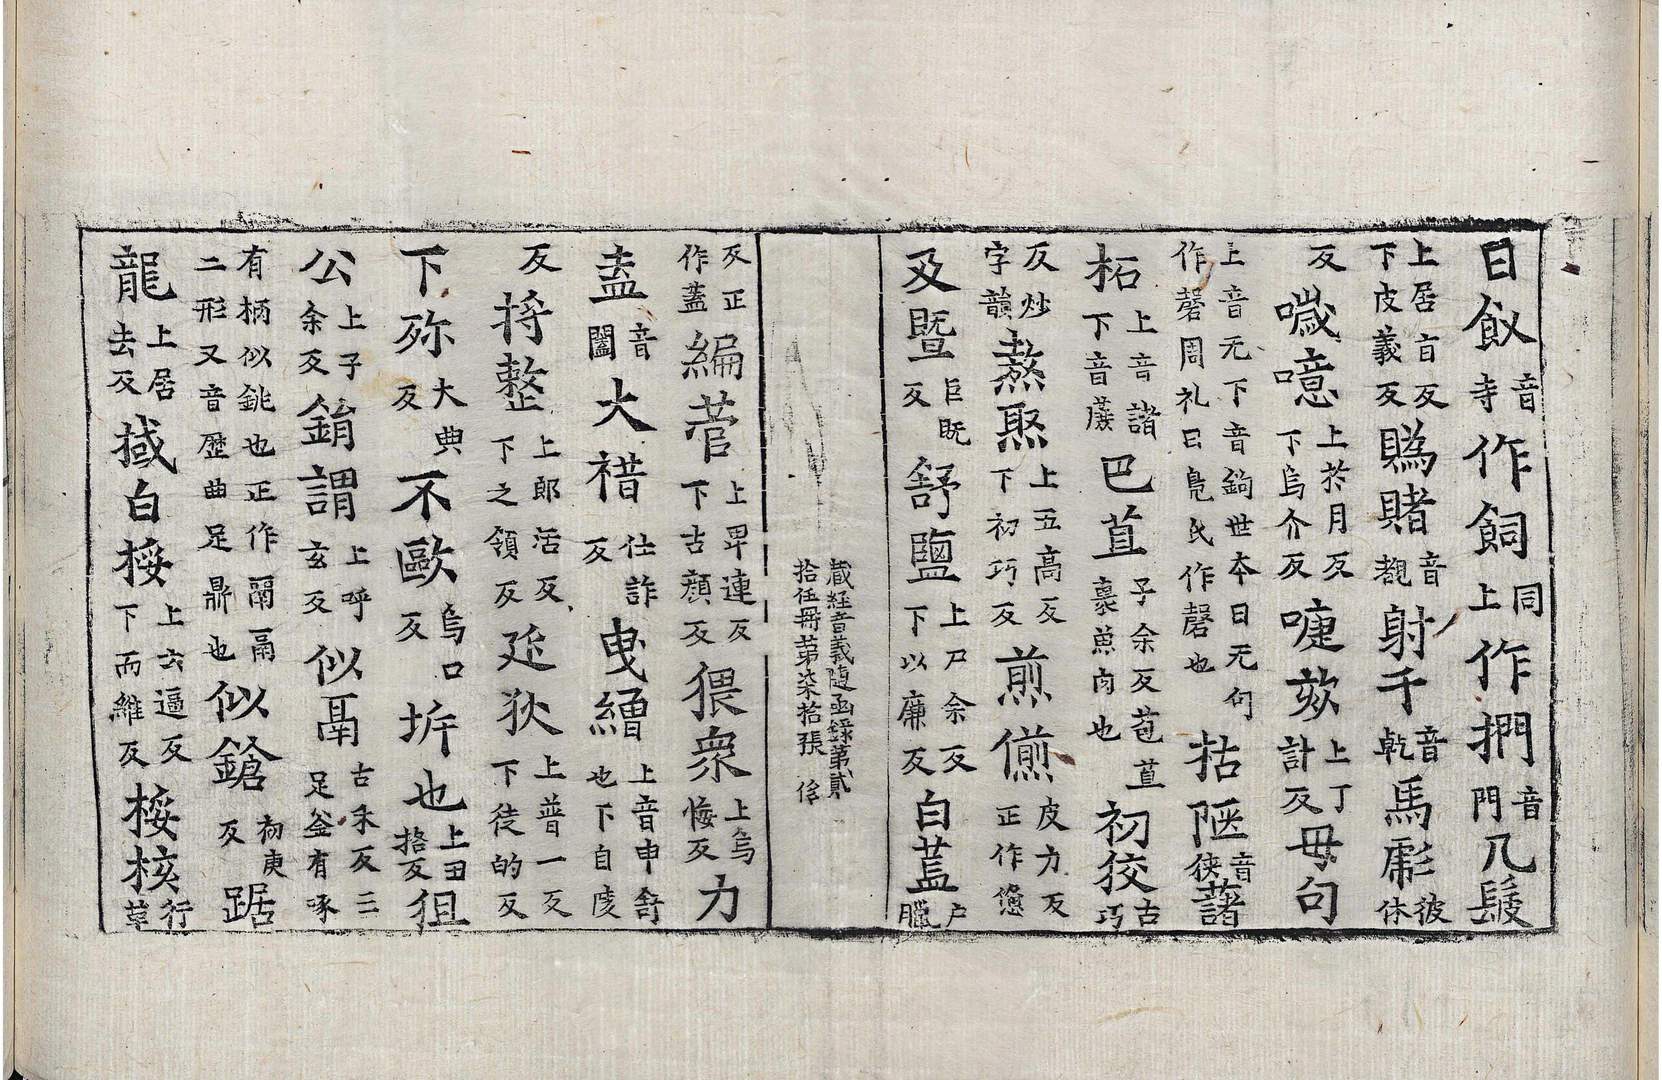 日飤音寺作飼同上作捫音門几髲
上居盲反下皮義反賭音覩射千音乾馬彪彼休
反噦噫上於月反下烏介反嚏欬上丁計反毋句
上音无下音鉤世本日无句作磬周礼曰鳧氏作磬也枯陜音狹藷
柘上音諸下音蔗巴苴子余反苞苴裹魚肉也初狡古巧
反炒字韻熬聚上五高反下初巧反煎㷶皮力反正作㷶
及暨巨既反舒鹽上尸余反下以廉反白蓋戶臘
藏經音義隨函錄第貳拾伍冊第柒拾張
反正作蓋編菅上卑連反下古顔反猥衆上烏悔反力
盍音闔大䄍仕詐反曳繒上音申也下自陵
反捋整上郎活反下之領反迯狄上普一反下徒的反
下殄大典反不歐烏口反坼也上田格反狙
公上子余反銷謂上呼玄反似鬲古禾反三足釜有喙
有柄似銚也正作鬲鬲二形又音歷曲足鼎也似鎗初庚反踞
龍上居去反掝白桵上六逼反下而維反桵核行草